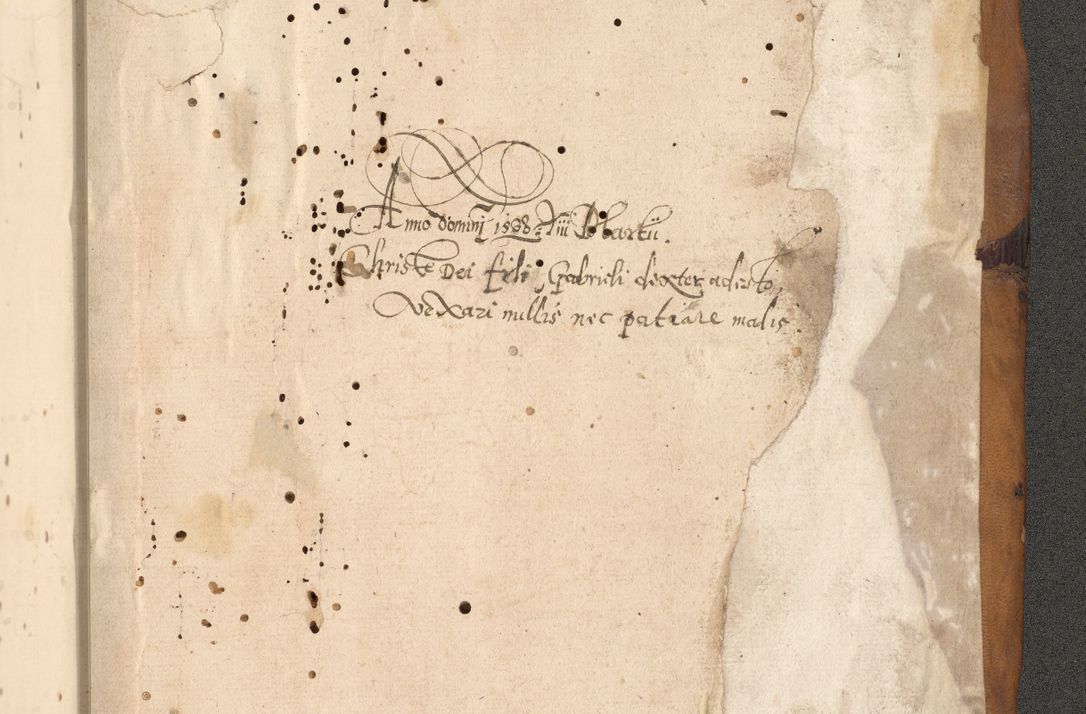 Anno domini 1588 Martii.
Christe Dei fili, Gabrieli dexter adesto,
Vexari nullis nec patiare malis.